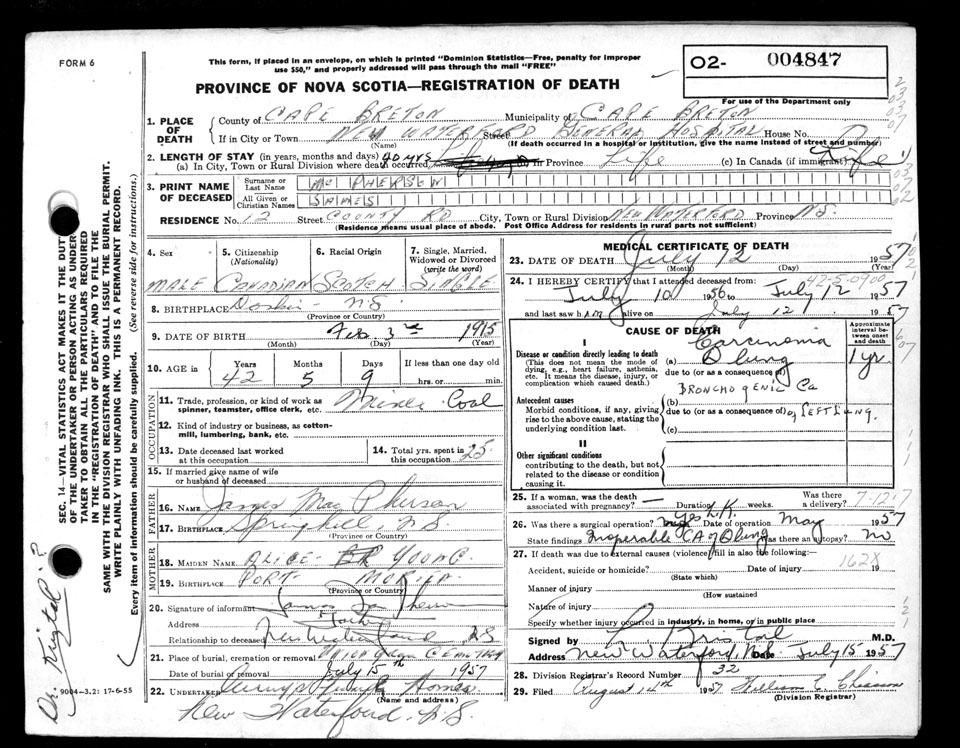 FORM 6
This form, if placed in an envelope, on which is printed "Dominion Statistics—Free, penalty for improper
use $50," and properly addressed will pass through the mail "FREE"
PROVINCE OF NOVA SCOTIA—REGISTRATION OF DEATH
O2- 004847
For use of the Department only
1. PLACE OF DEATH
County of CAPE BRETON Municipality of CAPE BRETON
If in City or Town NEW WATERFORD Street GENERAL HOSPITAL House No.
(Name) (If death occurred in a hospital or institution, give the name instead of street and number)
2. LENGTH OF STAY (in years, months and days)
(a) In City, Town or Rural Division where death occurred 40 yrs (b) in Province Life (c) In Canada (if immigrant) Life
3. PRINT NAME OF DECEASED
Surname or Last Name McPHERSEN
All Given or Christian Names JAMES
RESIDENCE No. 12 Street COUNTY RD City, Town or Rural Division NEW WATERFORD Province N.S.
(Residence means usual place of abode. Post Office Address for residents in rural parts not sufficient)
4. Sex MALE
5. Citizenship (Nationality) CANADIAN
6. Racial Origin SCOTCH
7. Single, Married, Widowed or Divorced (write the word) SINGLE
8. BIRTHPLACE N.S.
(Province or Country)
9. DATE OF BIRTH Feb. 3rd 1915
(Month) (Day) (Year)
10. AGE in Years 42 Months 5 Days 9 If less than one day old
hrs. or min.
OCCUPATION
11. Trade, profession, or kind of work as spinner, teamster, office clerk, etc. Miner Coal
12. Kind of industry or business, as cotton-mill, lumbering, bank, etc.
13. Date deceased last worked at this occupation
14. Total yrs. spent in this occupation 25
15. If married give name of wife or husband of deceased
FATHER
16. NAME James MacPherson
17. BIRTHPLACE Springhill, N.S.
(Province or Country)
MOTHER
18. MAIDEN NAME ALICE YOUNG
19. BIRTHPLACE PORT MORIEN
(Province or Country)
20. Signature of informant
Address
Relationship to deceased New Waterford N.S.
21. Place of burial, cremation or removal CEMETERY
Date of burial or removal July 15th 1957
22. UNDERTAKER Homes
(Name and address)
New Waterford, N.S.
MEDICAL CERTIFICATE OF DEATH
23. DATE OF DEATH July 12 1957
(Month) (Day) (Year)
24. I HEREBY CERTIFY that I attended deceased from
July 10 1956 to July 12 1957
and last saw him alive on July 12 1957
CAUSE OF DEATH
Approximate interval between onset and death
I
Disease or condition directly leading to death
(This does not mean the mode of dying, e.g., heart failure, asthenia, etc. It means the disease, injury, or complication which caused death.)
(a) Carcinoma lung 1 yr.
due to (or as consequence of)
Antecedent causes
Morbid conditions, if any, giving rise to the above cause, stating the underlying condition last.
(b) BRONCHOGENIC Ca
due to (or as consequence of) of LEFT LUNG.
(c)
II
Other significant conditions
contributing to the death, but not related to the disease or condition causing it.
25. If a woman, was the death associated with pregnancy? — weeks. Was there a delivery?
26. Was there a surgical operation? Yes Date of operation May 1957
State findings Inoperable CA of lung was there an autopsy? no
27. If death was due to external causes (violence) fill in also the following:—
Accident, suicide or homicide? Date of injury 19
(State which)
162X
Manner of injury
(How sustained)
Nature of injury
Specify whether injury occurred in industry, in home, or in public place
Signed by L. Bristol M.D.
Address New Waterford, N.S. Date July 15 1957
28. Division Registrar's Record Number 32
29. Filed August 14th 1957
(Division Registrar)
SEC. 14—VITAL STATISTICS ACT MAKES IT THE DUTY
OF THE UNDERTAKER OR PERSON ACTING AS UNDERTAKER TO OBTAIN ALL THE PARTICULARS REQUIRED
IN THE "REGISTRATION OF DEATH" AND TO FILE THE
SAME WITH THE DIVISION REGISTRAR WHO SHALL ISSUE THE BURIAL PERMIT.
WRITE PLAINLY WITH UNFADING INK. THIS IS A PERMANENT RECORD.
Every item of information should be carefully supplied. (See reverse side for instructions.)
9004-3.21: 17-6-55